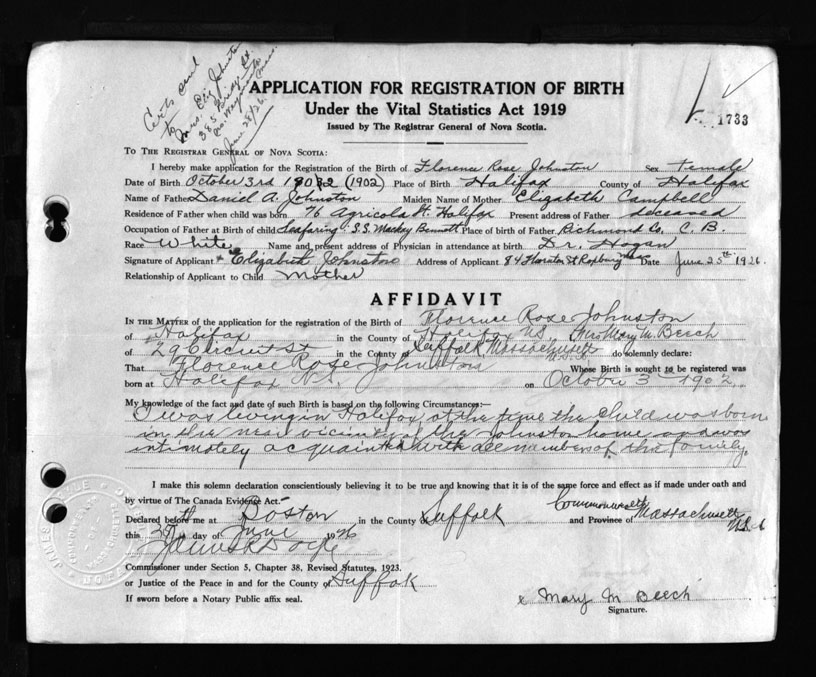 Certs and
to
Mrs. Eliz Johnston
385
June 28/26
APPLICATION FOR REGISTRATION OF BIRTH
Under the Vital Statistics Act 1919
Issued by The Registrar General of Nova Scotia.
1733
TO THE REGISTRAR GENERAL OF NOVA SCOTIA:
I hereby make application for the Registration of the Birth of Florence Rose Johnston Sex Female
Date of Birth October 3rd (1902) Place of Birth Halifax County of Halifax
Name of Father Daniel A. Johnston Maiden Name of Mother Elizabeth Campbell
Residence of Father when child was born 76 Agricola St. Halifax Present address of Father deceased
Occupation of Father at Birth of child Seafaring: S.S. Mackay Bennett Place of birth of Father Richmond Co. C. B.
Race White Name and present address of Physician in attendance at birth Dr. Hogan
Signature of Applicant x Elizabeth Johnston Address of Applicant 84 St Roxbury Mass Date June 25th 1926.
Relationship of Applicant to Child Mother
AFFIDAVIT
IN THE MATTER of the application for the registration of Birth of Florence Rose Johnston
of Halifax in the County of Halifax N.S. Mrs Mary M. Beech
of 29 Circuit St in the County of Suffolk Massachusetts do solemnly declare:
That Florence Rose Johnston Whose Birth is sought to be registered was
born at Halifax N.S. on October 3rd 1902
My knowledge of the fact and date of such Birth is based on the following Circumstances:—
I was living in Halifax at the time the child was born
in the near vicinity of the Johnston home and was
intimately acquainted with all members of the family.
I make this solemn declaration conscientiously believing it to be true and knowing that it is of the same force and effect as if made under oath and
by virtue of The Canada Evidence Act.
Declared before me at Boston in the County of Suffolk Commonwealth and Province of Massachusetts
U.S.A
this day of June 1926
Commissioner under Section 5, Chapter 38, Revised Statutes, 1923.
or Justice of the Peace in and for the County of Suffolk
If sworn before a Notary Public affix seal.
x Mary M Beech
Signature.